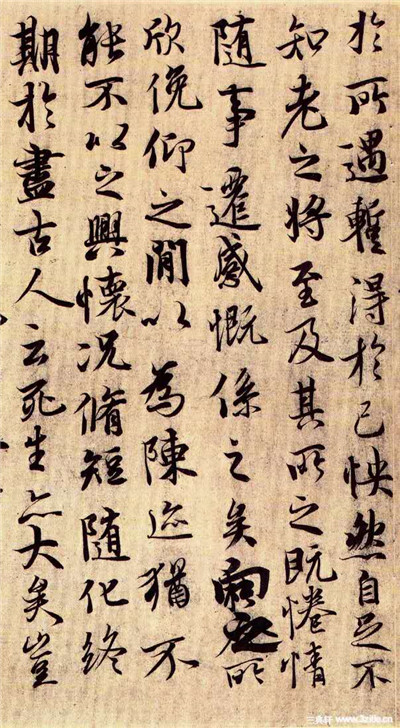 於所遇暫得於己怏然自足不
知老之將至及其所之既惓情
隨事遷感慨係之矣向之所
欣俛仰之閒以為陳迹猶不
能不以之興懷況脩短隨化終
期於盡古人云死生亦大矣豈
www.3zitie.cn